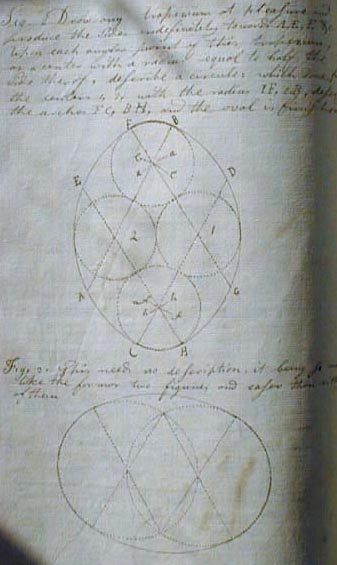 Fig. 1 Draw any Trapezium at pleasure and
produce the Sides indefinitely towards A, B, E, &c
upon each angular point of this trapezium,
as a center with a radius equal to half the
side thereof, describe a circule: which done from
the centers 1, 2, with the radius 1E, 2B, describe
the arches FC, BH, and the oval is finished
F B
a a
c
E D
2 1
A G
h
C H
Fig. 2. This needs no description, it being so
like the former two figures and easer than either
of them